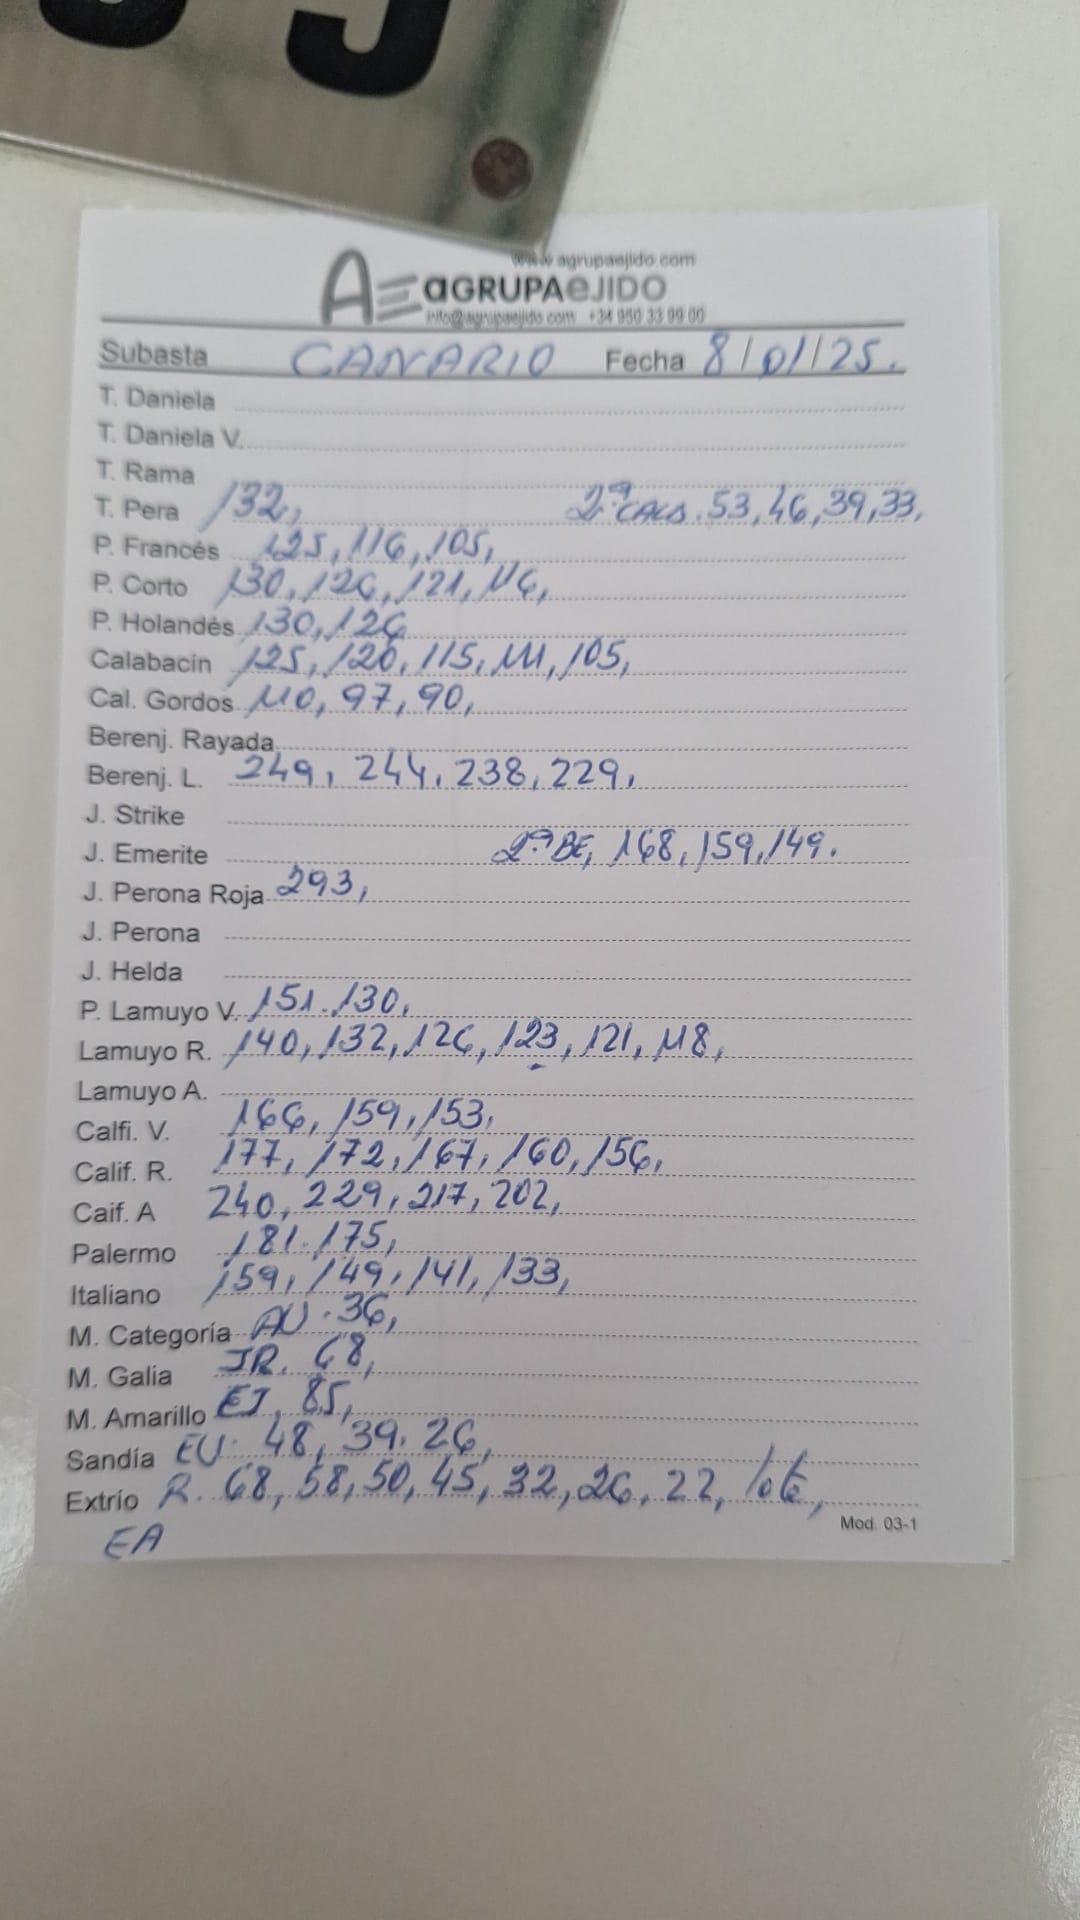 www.agrupaejido.com
AE aGRUPAeJIDO
info@agrupaejido.com +34 950 33 99 00
Subasta CANARIO Fecha 8/01/25.
T. Daniela
T. Daniela V.
T. Rama
T. Pera 132, 2ª CALS. 53, 46, 39, 33,
P. Francés 125, 116, 105,
P. Corto 130, 126, 121, 116,
P. Holandés 130, 126
Calabacín 125, 120, 115, 111, 105,
Cal. Gordos 110, 97, 90,
Berenj. Rayada
Berenj. L. 249, 244, 238, 229,
J. Strike
J. Emerite 2ª BE, 168, 159, 149.
J. Perona Roja 293,
J. Perona
J. Helda
P. Lamuyo V. 151. 130,
Lamuyo R. 140, 132, 126, 123, 121, 118,
Lamuyo A.
Calfi. V. 166, 159, 153,
Calif. R. 177, 172, 167, 160, 156,
Caif. A 240, 229, 217, 202,
Palermo 181. 175,
Italiano 159, 149, 141, 133,
M. Categoría AU. 36,
M. Galia JR. 68,
M. Amarillo EJ. 85,
Sandía EU. 48, 39. 26,
Extrío R. 68, 58, 50, 45, 32, 26, 22, lote,
EA
Mod. 03-1